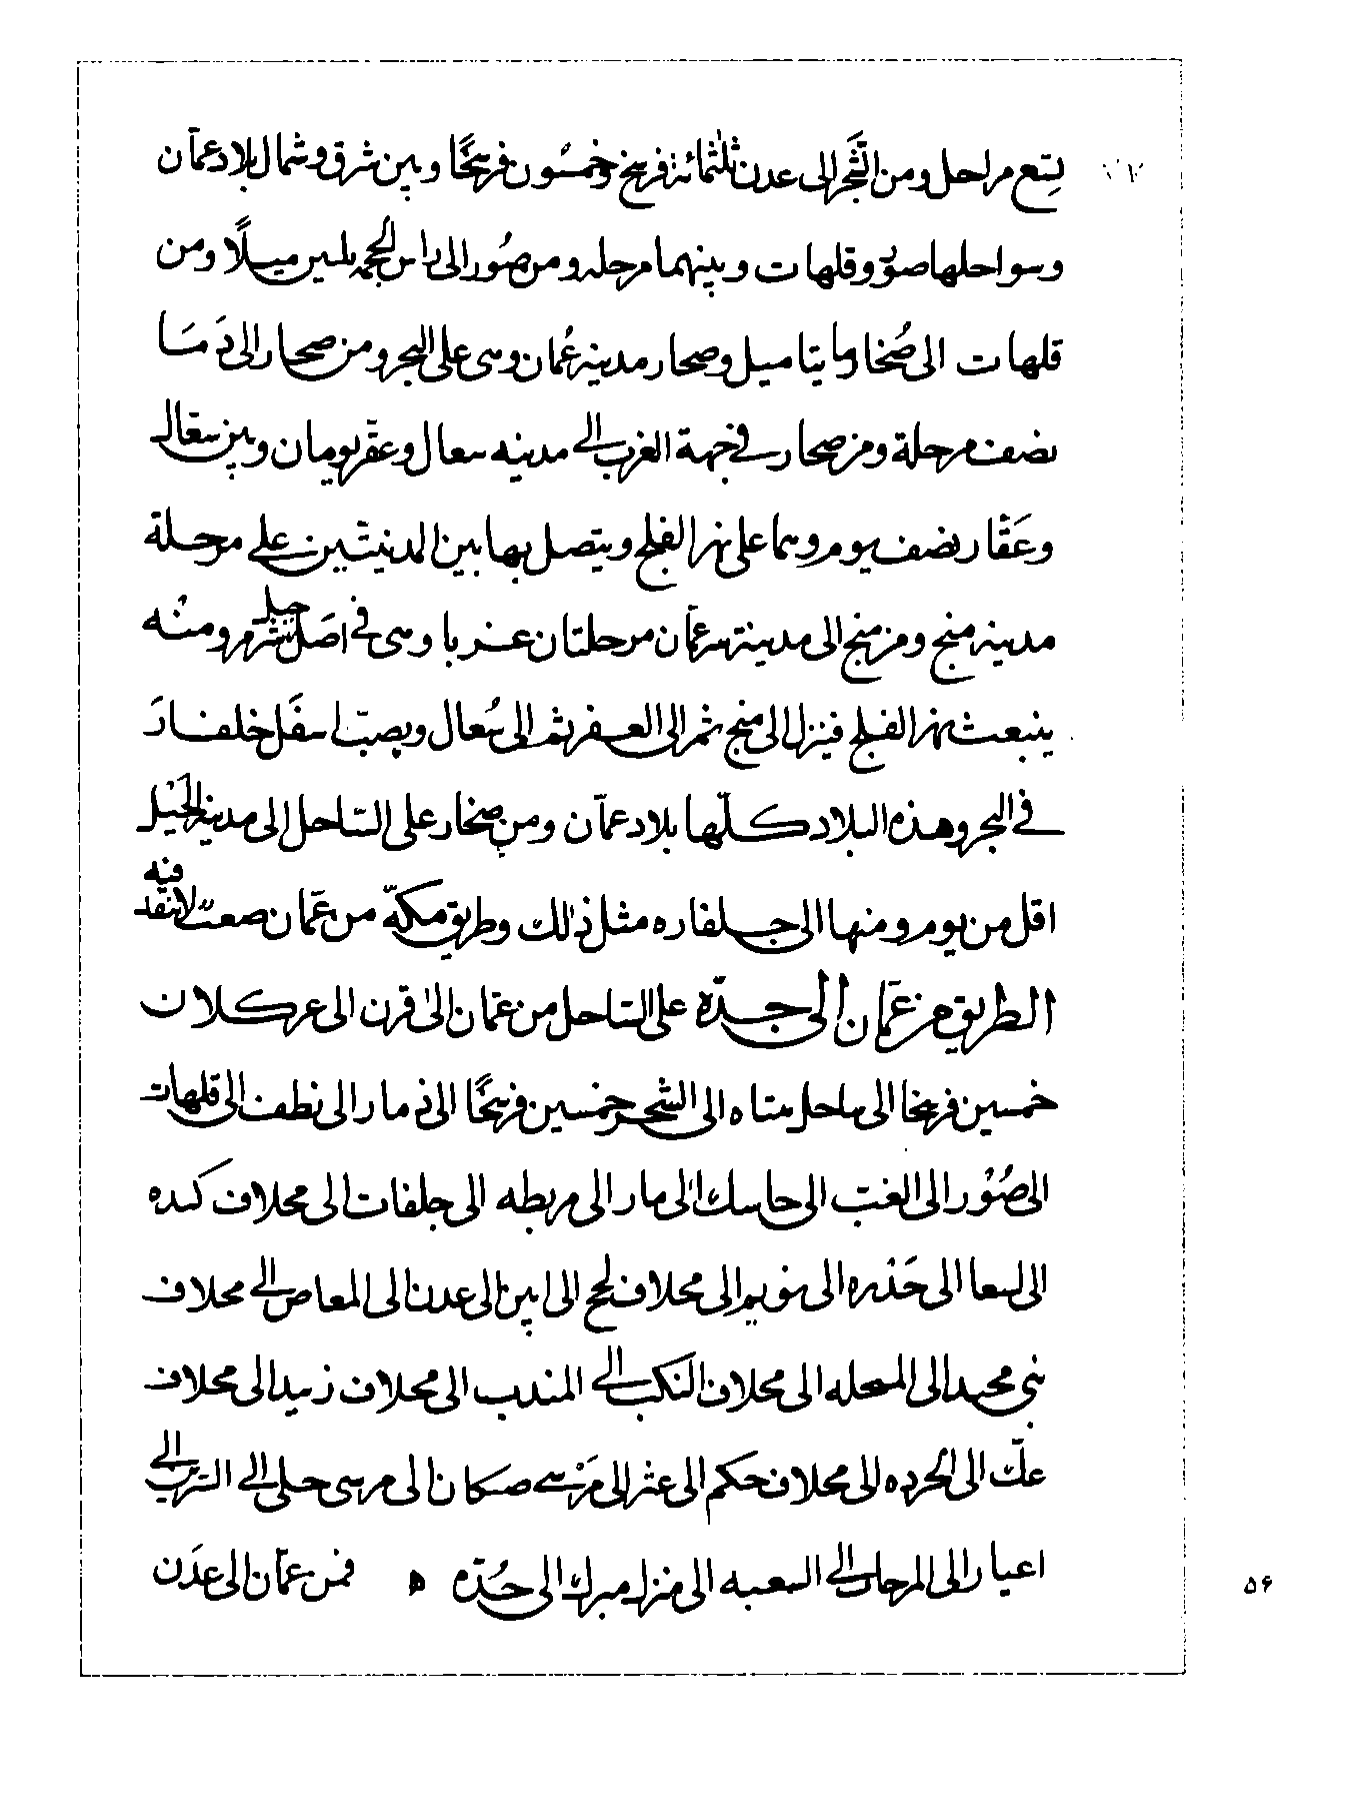 تسع مراحل ومن الشحر الى عدن ثلثمائة فرسخ وخمسون فرسخًا وبين شرق وشمال بلاد عمان
وسواحلها صور وقلهات وبينهما مرحله ومن صُور الى راس المحجمه ثلثين ميلًا ومن
قلهات الى صُحار مايتا ميل وصحار مدينه عُمان وهى على البحر ومن صحار الى دَمَا
نصف مرحلة ومن صحار فى جهة الغرب الى مدينه سعال وعقر يومان وبين سعال
وعَقَار نصف يوم وهما على نهر الفلج ويتصل بهابين المدينتين على مرحلة
مدينه منح ومن منح الى مدينة سر عمان مرحلتان غربا وهى فى اصل جبل شرم ومنه
ينبعث نهر الفلج فينزل الى منح ثم الى العفر ثم الى سُعال ويصبّ اسفَل جلفارَ
فى البحر وهذه البلاد كلّها بلاد عمّان ومن صحار على السّاحل الى مدينة الجَيْل
اقل من يوم ومنها الى جلفاره مثل ذلك وطريق مكّة من عمّان صعب لانقد فيه
الطريق من عمان الى جدّه على السّاحل من عمّان الى قرن الى عركلان
خمسين فرسخا الى ساحل هتاه الى الشحر خمسين فرسخًا الى ذمار الى نطف الى قلهات
الى صُوْر الى الغب الى حاسك الى مار الى مربطه الى جلفات الى مخلاف كنده
الى لسعا الى حَذره الى هويم الى مخلاف لحج الى ابين الى عدن الى المعاص الى مخلاف
بنى مجيد الى المنجله الى مخلاف الركب الى المندب الى مخلاف زبيد الى مخلاف
عكّ الى الحرده الى مخلاف حكم الى عثر الى مَرْسى ضنكان الى مرسى حلى الى السرّين الى
اعيار الى المرجاب الى الشعيبه الى منزل مبرك الى جُدّه ه فمن عمّان الى عدَن
۵۶